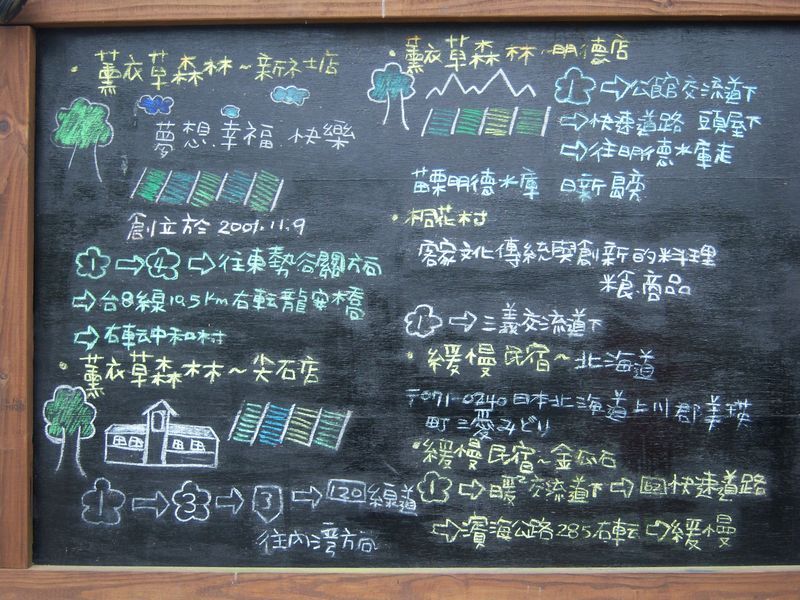 薰衣草森林~新社店
夢想.幸福.快樂
創立於2001.11.9
1 → 4 → 往東勢谷關方向
→ 台8線10.5km右転龍安橋
→ 右転中和村
薰衣草森林~尖石店
1 → 3 → 3 → 120線道
往內湾方向
薰衣草森林~明德店
1 → 公館交流道下
→ 快速道路 頭屋下
→ 往明德水庫走
苗栗明德水庫 日新島
桐花村
客家文化傳統與創新的料理
米食.商品
1 → 三義交流道下
緩慢民宿~北海道
〒071-0240日本北海道上川郡美瑛
町三愛みどり
緩慢民宿~金瓜石
1 → 暖交流道下 → 快速道路
→ 濱海公路285右転 → 緩慢